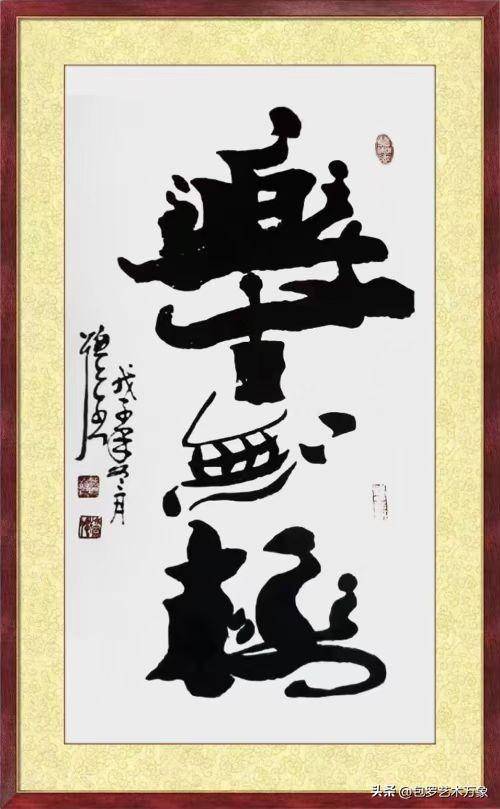 樂無極
戊子年冬月
头条 @包罗艺术万象